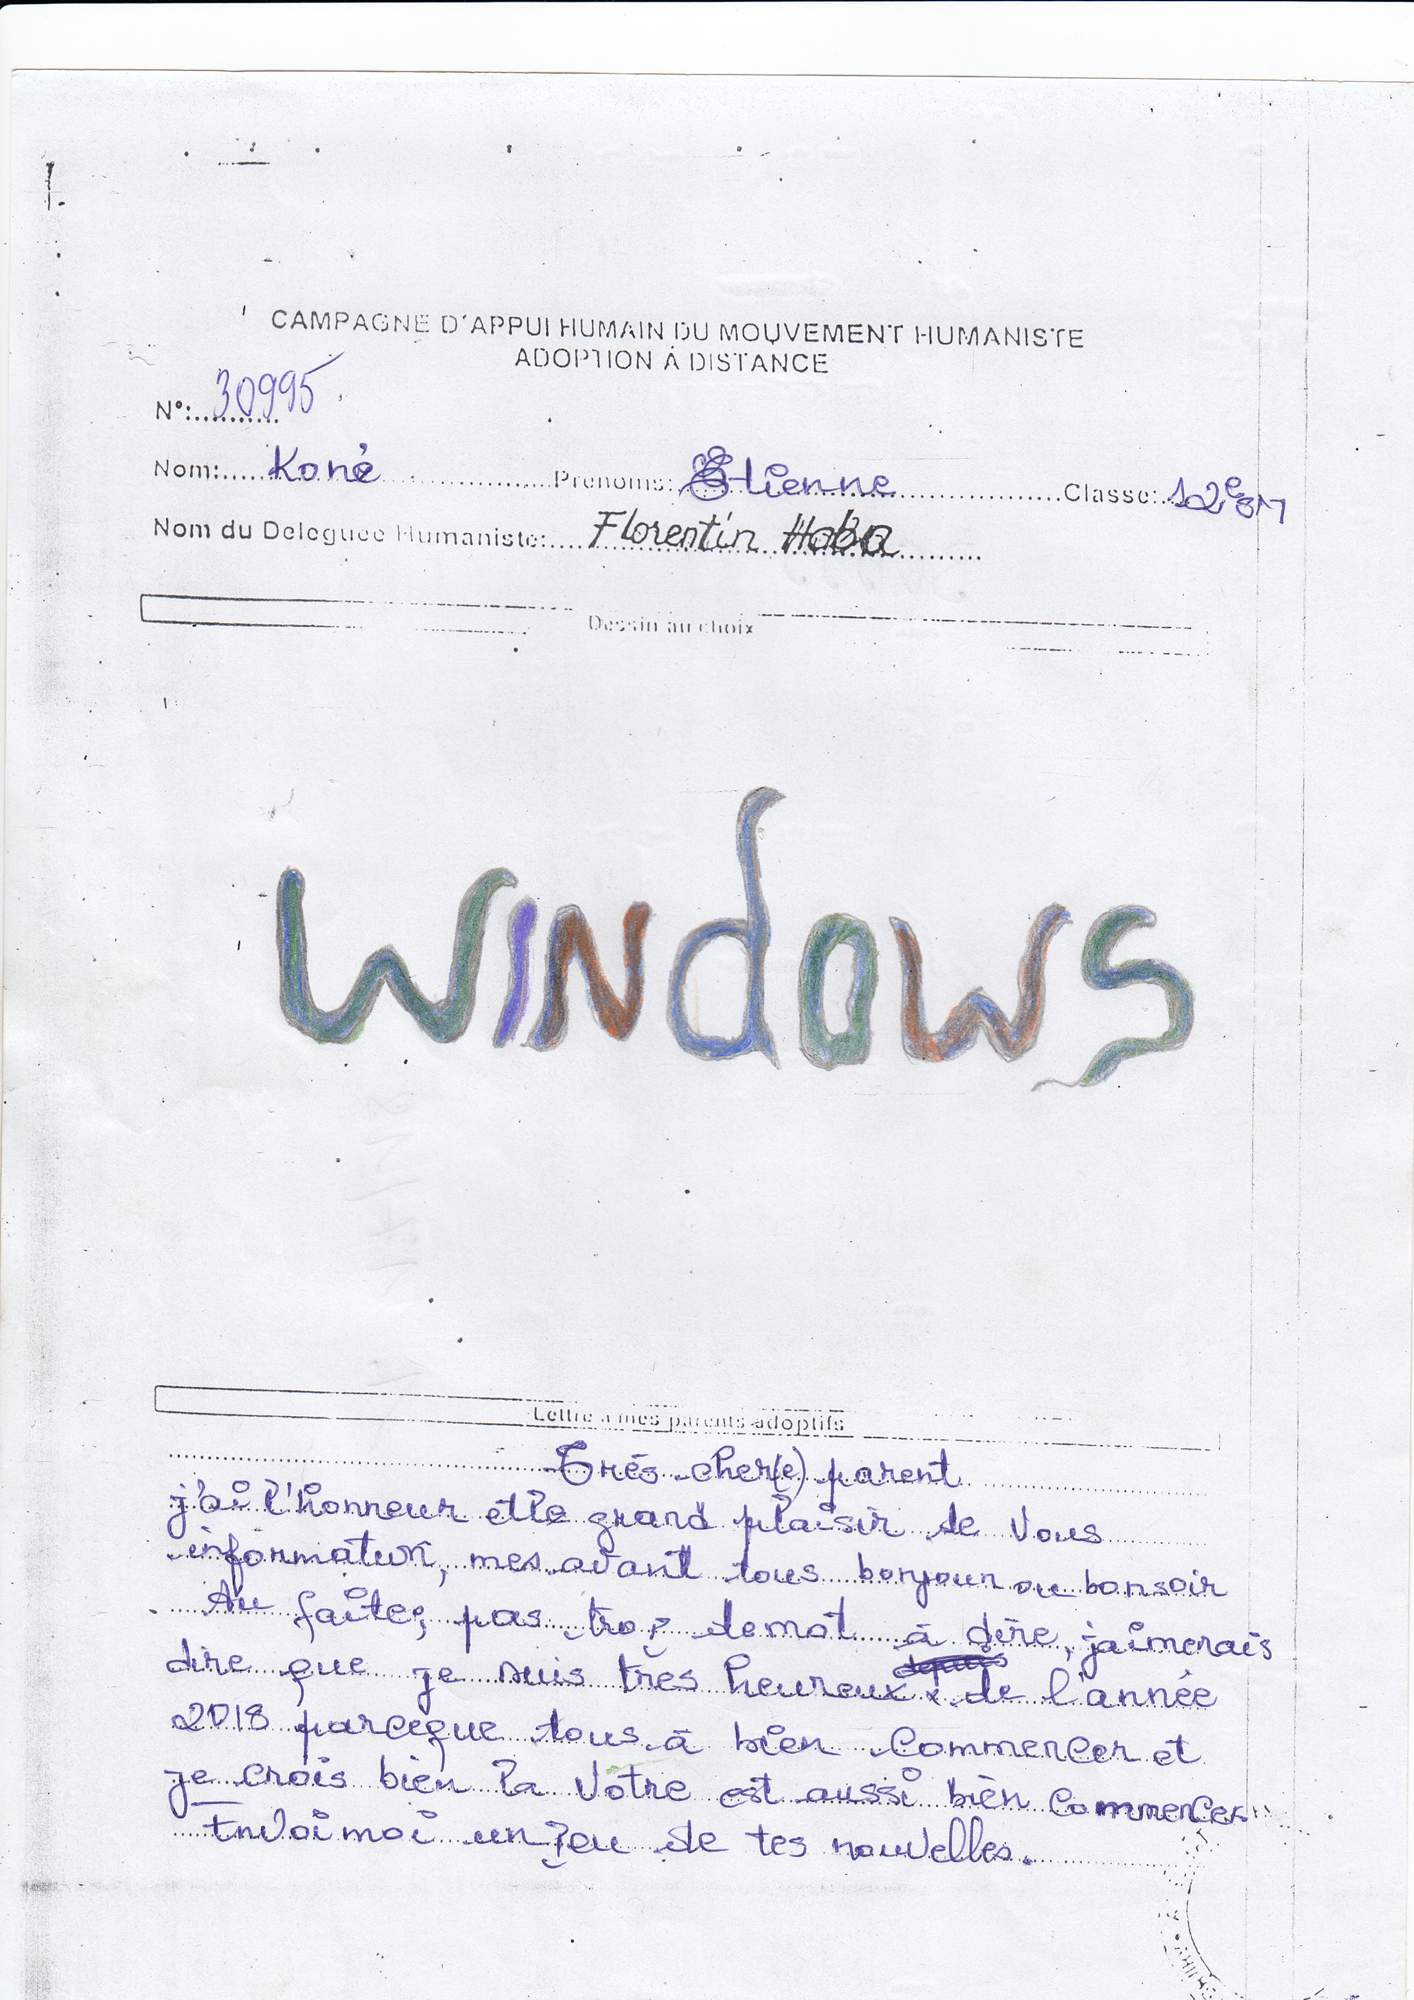 CAMPAGNE D'APPUI HUMAIN DU MOUVEMENT HUMANISTE
ADOPTION À DISTANCE
N°: 30995
Nom: Koné Prénoms: Etienne Classe: 12e SM
Nom du Deleguee Humaniste: Florentin Haba
Dessin au choix
WINdOWS
Lettre a mes parents adoptifs
Très cher(e) parent
j'ai l'honneur et le grand plaisir de vous
information, mes avant tous bonjour ou bonsoir
Au faite, pas trop de mot à dire, j'aimerais
dire que je suis très heureux de l'année
2018 parceque tous à bien commencer et
je crois bien la vôtre est aussi bien commencer
Envoi moi un peu de tes nouvelles.